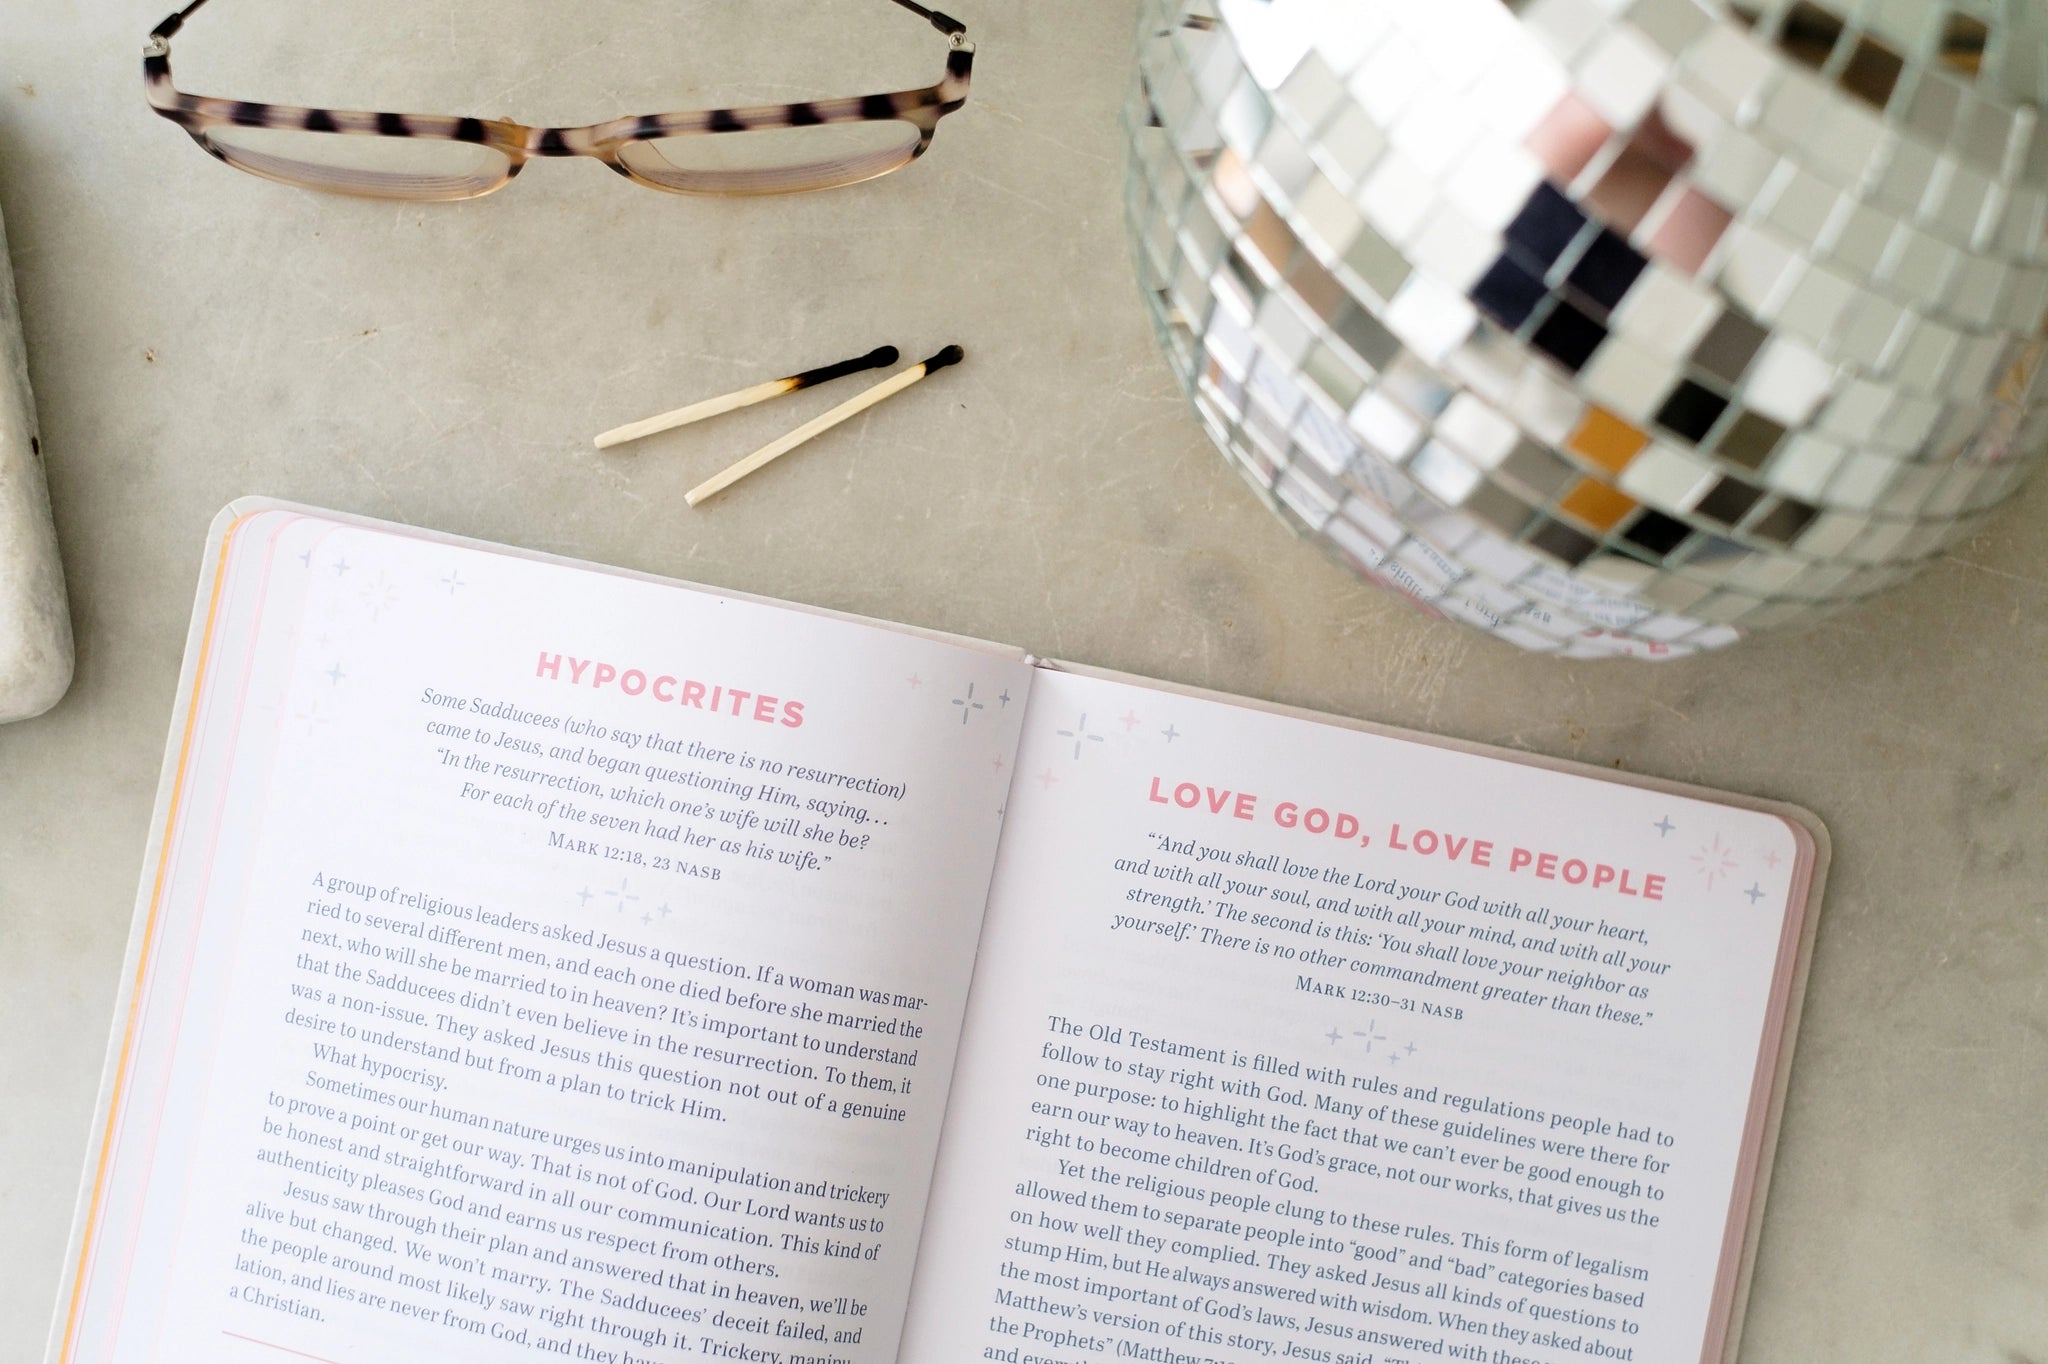 HYPOCRITES
Some Sadducees (who say that there is no resurrection)
came to Jesus, and began questioning Him, saying. . .
“In the resurrection, which one’s wife will she be?
For each of the seven had her as his wife.”
MARK 12:18, 23 NASB
A group of religious leaders asked Jesus a question. If a woman was mar-
ried to several different men, and each one died before she married the
next, who will she be married to in heaven? It’s important to understand
that the Sadducees didn’t even believe in the resurrection. To them, it
was a non-issue. They asked Jesus this question not out of a genuine
desire to understand but from a plan to trick Him.
What hypocrisy.
Sometimes our human nature urges us into manipulation and trickery
to prove a point or get our way. That is not of God. Our Lord wants us to
be honest and straightforward in all our communication. This kind of
authenticity pleases God and earns us respect from others.
Jesus saw through their plan and answered that in heaven, we’ll be
alive but changed. We won’t marry. The Sadducees’ deceit failed, and
the people around most likely saw right through it. Trickery, manipu-
lation, and lies are never from God, and they have
a Christian.
LOVE GOD, LOVE PEOPLE
“‘And you shall love the Lord your God with all your heart,
and with all your soul, and with all your mind, and with all your
strength.’ The second is this: ‘You shall love your neighbor as
yourself.’ There is no other commandment greater than these.”
MARK 12:30–31 NASB
The Old Testament is filled with rules and regulations people had to
follow to stay right with God. Many of these guidelines were there for
one purpose: to highlight the fact that we can’t ever be good enough to
earn our way to heaven. It’s God’s grace, not our works, that gives us the
right to become children of God.
Yet the religious people clung to these rules. This form of legalism
allowed them to separate people into “good” and “bad” categories based
on how well they complied. They asked Jesus all kinds of questions to
stump Him, but He always answered with wisdom. When they asked about
the most important of God’s laws, Jesus answered with these
Matthew’s version of this story, Jesus said,
the Prophets” (Matthew
and